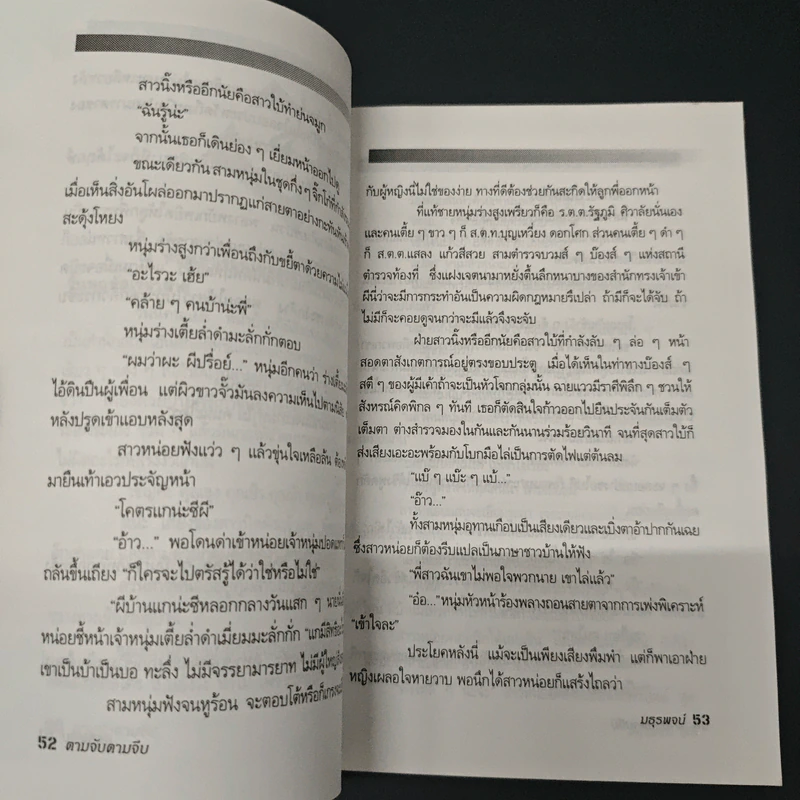 สาวนิ้งหรืออีกนัยคือสาวใบ้ทำย่นจมูก
"ฉันรู้น่ะ"
จากนั้นเธอก็เดินย่อง ๆ เยี่ยมหน้าออกไปดู
ขณะเดียวกัน สามหนุ่มในชุดกึ่ง ๆ จิ๊กโก๋ที่กำลัง
เมื่อเห็นสิ่งอันโผล่ออกมาปรากฏแก่สายตาอย่างกะทันหัน
สะดุ้งโหยง
หนุ่มร่างสูงกว่าเพื่อนถึงกับขยี้ตาด้วยความ
"อะไรวะ เฮ้ย"
"คล้าย ๆ คนบ้าน่ะพี่"
หนุ่มร่างเตี้ยล่ำดำมะลั่กกั่กตอบ
"ผมว่าผะ ผีปรื๋อย์..." หนุ่มอีกคนว่า ร่างเตี้ย
ไอ้ดินปืนผู้เพื่อน แต่ผิวขาวจั๊วมันลงความเห็นไปตาม
หลังปรูดเข้าแอบหลังสุด
สาวหน่อยฟังแว่ว ๆ แล้วขุ่นใจเหลือล้น ต้อง
มายืนเท้าเอวประจัญหน้า
"โคตรแกน่ะซีผี"
"อ้าว..." พอโดนด่าเข้าหน่อยเจ้าหนุ่มปอด
ถลันขึ้นเถียง "ก็ใครจะไปตรัสรู้ได้ว่าใช่หรือไม่ใช่"
"ผีบ้านแกน่ะซีหลอกกลางวันแสก ๆ นาย
หน่อยชี้หน้าเจ้าหนุ่มเตี้ยล่ำดำเมี่ยมมะลั่กกั่ก "แกมีสิทธิ์
เขาเป็นบ้าเป็นบอ ทะลึ่ง ไม่มีจรรยามารยาท ไม่มีผู้ใหญ่
สามหนุ่มฟังจนหูร้อน จะตอบโต้หรือก็เกรง
52 ตามจับตามจีบ
กับผู้หญิงนี่ไม่ใช่ของง่าย ทางที่ดีต้องช่วยกันสะกิดให้ลูกพี่ออกหน้า
ที่แท้ชายหนุ่มร่างสูงเพรียวก็คือ ร.ต.ต.รัฐภูมิ ศิวาลัยนั่นเอง
และคนเตี้ย ๆ ขาว ๆ ก็ ส.ต.ท.บุญเหวี่ยง ดอกโศก ส่วนคนเตี้ย ๆ ดำ ๆ
ก็ ส.ต.ต.แสลง แก้วสีสวย สามตำรวจบวมส์ ๆ บ๊องส์ ๆ แห่งสถานี
ตำรวจท้องที่ ซึ่งแฝงเจตนามาหยั่งตื้นลึกหนาบางของสำนักทรงเจ้าเข้า
ผีนี่ว่าจะมีการกระทำอันเป็นความผิดกฎหมายรึเปล่า ถ้ามีก็จะได้จับ ถ้า
ไม่มีก็จะคอยดูจนกว่าจะมีแล้วจึงจะจับ
ฝ่ายสาวนิ้งหรืออีกนัยคือสาวใบ้ที่กำลังลับ ๆ ล่อ ๆ หน้า
สอดตาสังเกตการณ์อยู่ตรงขอบประตู เมื่อได้เห็นในท่าทางบ๊องส์ ๆ
สตี ๆ ของผู้มีเค้าถ้าจะเป็นหัวโจกกลุ่มนั้น ฉายแววมีราศีพิลึก ๆ ชวนให้
สังหรณ์คิดพิกล ๆ ทันที เธอก็ตัดสินใจก้าวออกไปยืนประจันกันเต็มตัว
เต็มตา ต่างสำรวจมองในกันและกันนานร่วมร้อยวินาที จนที่สุดสาวใบ้ก็
ส่งเสียงเอะอะพร้อมกับโบกมือไล่เป็นการตัดไฟแต่ต้นลม
"แบ๊ ๆ แบ๊ะ ๆ แบ้..."
"อ๊าว..."
ทั้งสามหนุ่มอุทานเกือบเป็นเสียงเดียวและเบิ่งตาอ้าปากกันเฉย
ซึ่งสาวหน่อยก็ต้องรีบแปลเป็นภาษาชาวบ้านให้ฟัง
"พี่สาวฉันเขาไม่พอใจพวกนาย เขาไล่แล้ว"
"อ๋อ..."หนุ่มหัวหน้าร้องพลางถอนสายตาจากการเพ่งพิเคราะห์
"เข้าใจละ"
ประโยคหลังนี่ แม้จะเป็นเพียงเสียงพึมพำ แต่ก็พาเอาฝ่าย
หญิงเผลอใจหายวาบ พอนึกได้สาวหน่อยก็แสร้งไถลว่า
มธุรพจน์ 53